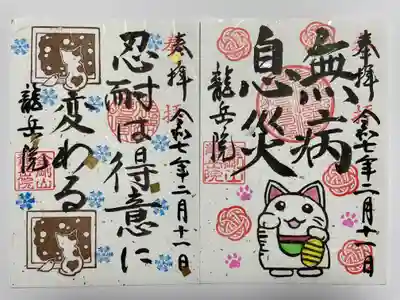 奉拝
令和七年二月十一日
無病
息災
龍岳院
奉拝
令和七年二月十一日
忍耐は得意に
変わる
龍岳院